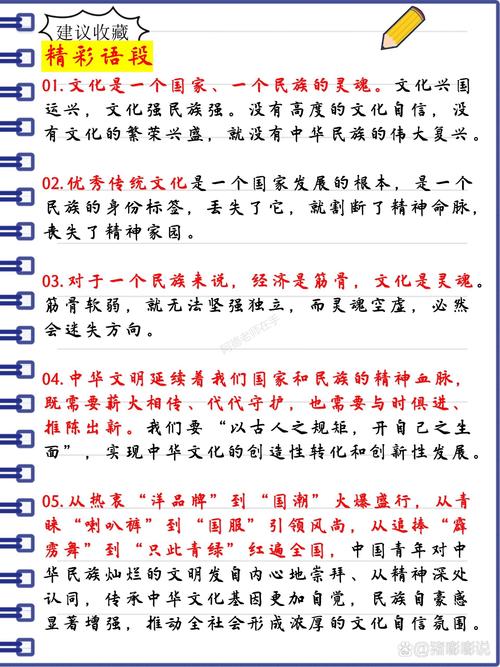 建议收藏
精彩语段
01.文化是一个国家、一个民族的灵魂。文化兴国
运兴，文化强民族强。没有高度的文化自信，没
有文化的繁荣兴盛，就没有中华民族的伟大复兴。
02.优秀传统文化是一个国家发展的根本，是一个
民族的身份标签，丢失了它，就割断了精神命脉，
丧失了精神家园。
03.对于一个民族来说，经济是筋骨，文化是灵魂。
筋骨软弱，就无法坚强独立，而灵魂空虚，必然
会迷失方向。
阿德老师在手
04.中华文明延续着我们国家和民族的精神血脉，
既需要薪火相传、代代守护，也需要与时俱进、
推陈出新。我们要“以古人之规矩，开自己之生
面”，实现中华文化的创造性转化和创新性发展。
05.从热衷“洋品牌”到“国潮”火爆盛行，从青
睐“喇叭裤”到“国服”引领风尚，从追捧“霹
雳舞”到“只此青绿”红遍全国，中国青年对中
华民族灿烂的文明发自内心地崇拜、从精神深处
认同，传承中华文化基因更加自觉，民族自豪感
显著增强，推动全社会形成浓厚的文化自信氛围。